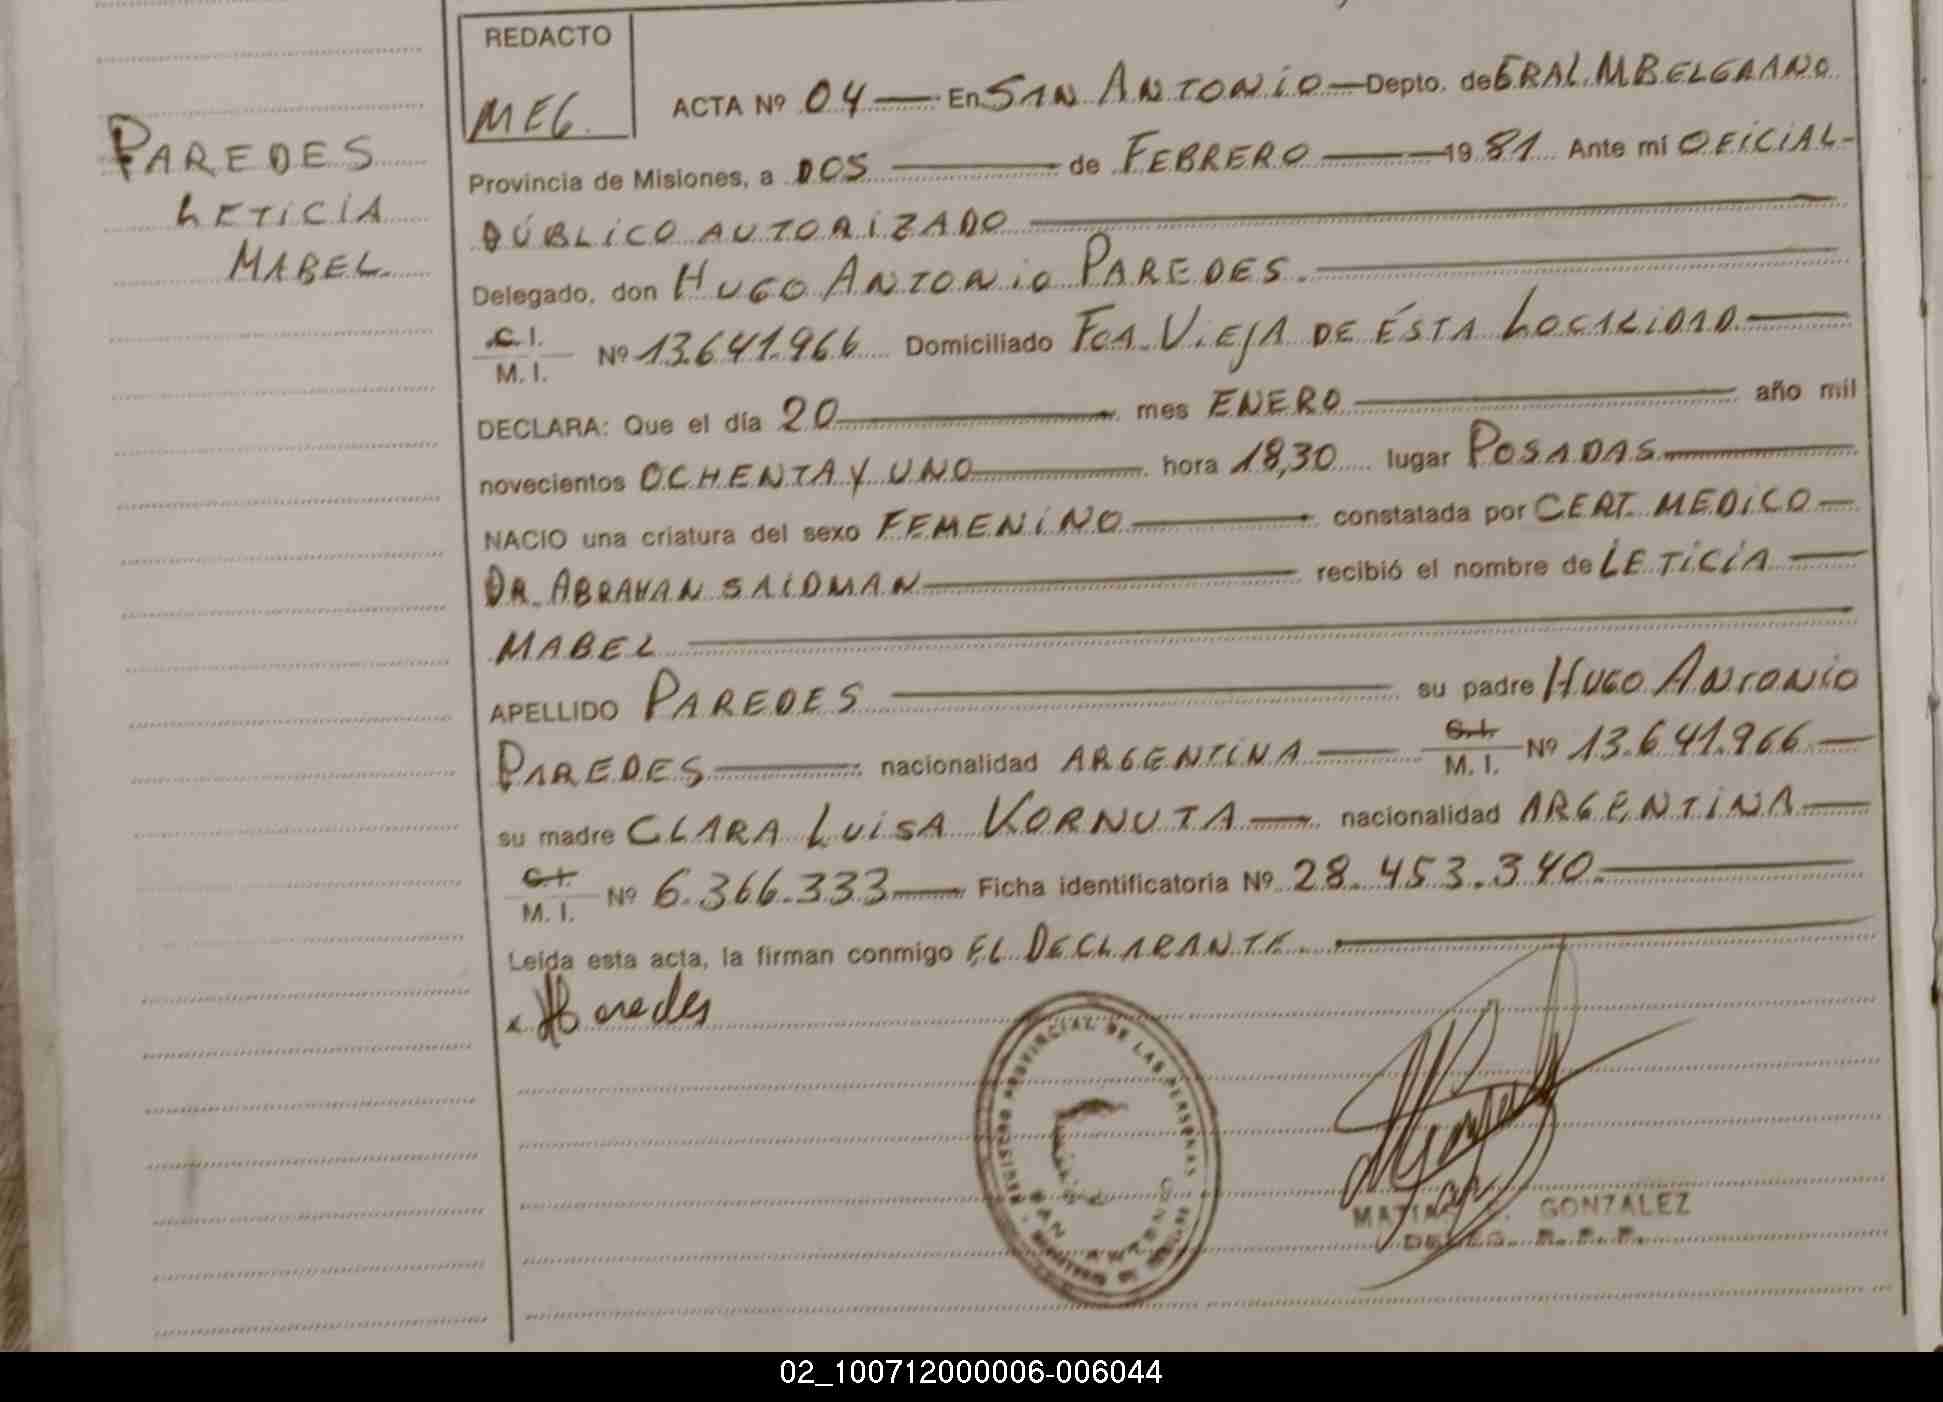 REDACTO
MEG.
ACTA Nº 04 — En SAN ANTONIO — Depto. de GRAL. M BELGRANO
PAREDES
LETICIA
MABEL
Provincia de Misiones, a DOS — de FEBRERO — 1981 Ante mí OFICIAL-
PÚBLICO AUTORIZADO
Delegado, don HUGO ANTONIO PAREDES.
C. I.
M. I.
Nº 13.641.966 Domiciliado FCA. VIEJA DE ÉSTA LOCALIDAD
DECLARA: Que el día 20 mes ENERO año mil
novecientos OCHENTA Y UNO hora 18,30 lugar POSADAS
NACIO una criatura del sexo FEMENINO constatada por CERT. MEDICO
DR. ABRAHAN SAIDMAN recibió el nombre de LETICIA
MABEL
APELLIDO PAREDES su padre HUGO ANTONIO
PAREDES nacionalidad ARGENTINA C. I. M. I. Nº 13.641.966
su madre CLARA LUISA KORNUTA nacionalidad ARGENTINA
C. I.
M. I.
Nº 6.366.333 Ficha identificatoria Nº 28.453.340.
Leída esta acta, la firman conmigo EL DECLARANTE.
x HParedes
REGISTRO PROVINCIAL DE LAS PERSONAS
SAN ANTONIO
GONZALEZ
DELEG. R. P. P.
02_100712000006-006044